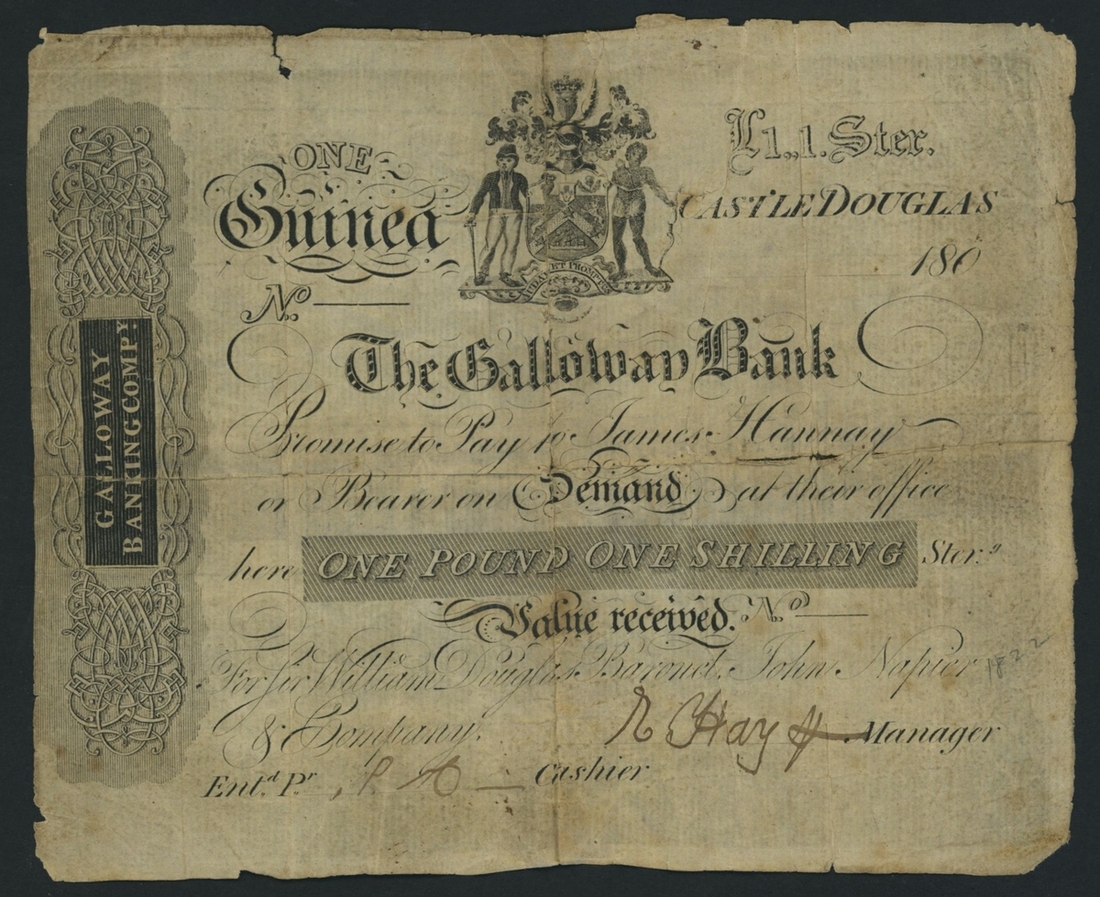 GALLOWAY
BANKING COMPY.
ONE
Guinea
£1,,1. Ster.
CASTLE DOUGLAS
180
No.
The Galloway Bank
Promise to Pay to James Hannay
or Bearer on Demand, at their office
here ONE POUND ONE SHILLING Ster.g
Value received. No.
For Sir William Douglas Baronet, John Napier
& Company.
1822
Hay Manager
Entd. Pr. Cashier